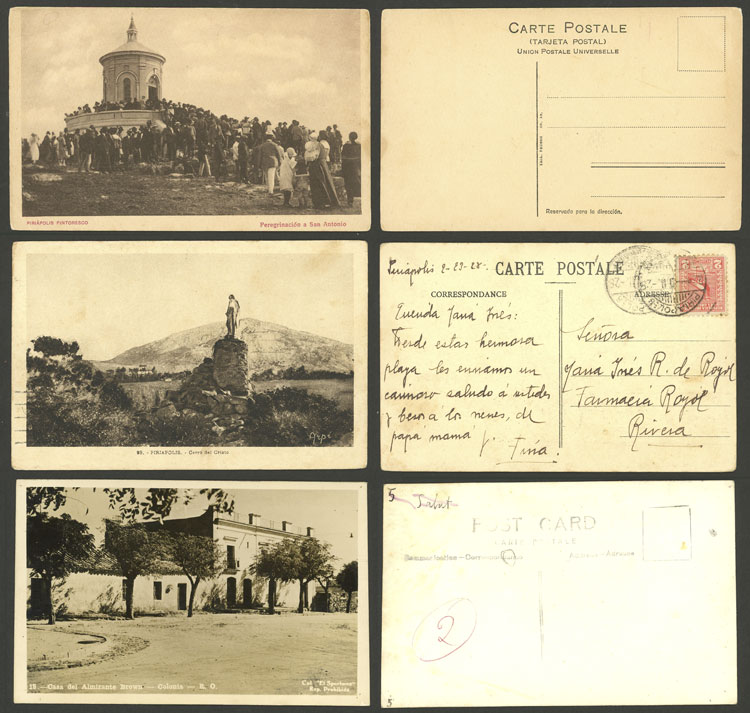 PIRIÁPOLIS PINTORESCO
Peregrinación a San Antonio
CARTE POSTALE
(TARJETA POSTAL)
UNION POSTALE UNIVERSELLE
Reservado para la dirección.
95. - PIRIAPOLIS. - Cerro del Cristo
Piriápolis 2-23-28.
CARTE POSTALE
CORRESPONDANCE
ADRESSE
2
2
Querida Juana Inés:
Desde estas hermosa
playa les enviamos un
cariñoso saludo á ustedes
y besos á los nenes, de
papa mamá y
Fina.
Señora
Juana Inés R. de Royol
Farmacia Royol
Rivera
13 - Casa del Almirante Brown - Colonia - R. O.
Cal. "El Sportman"
Rep. Prohibida
5
POST CARD
CARTE POSTALE
2
5